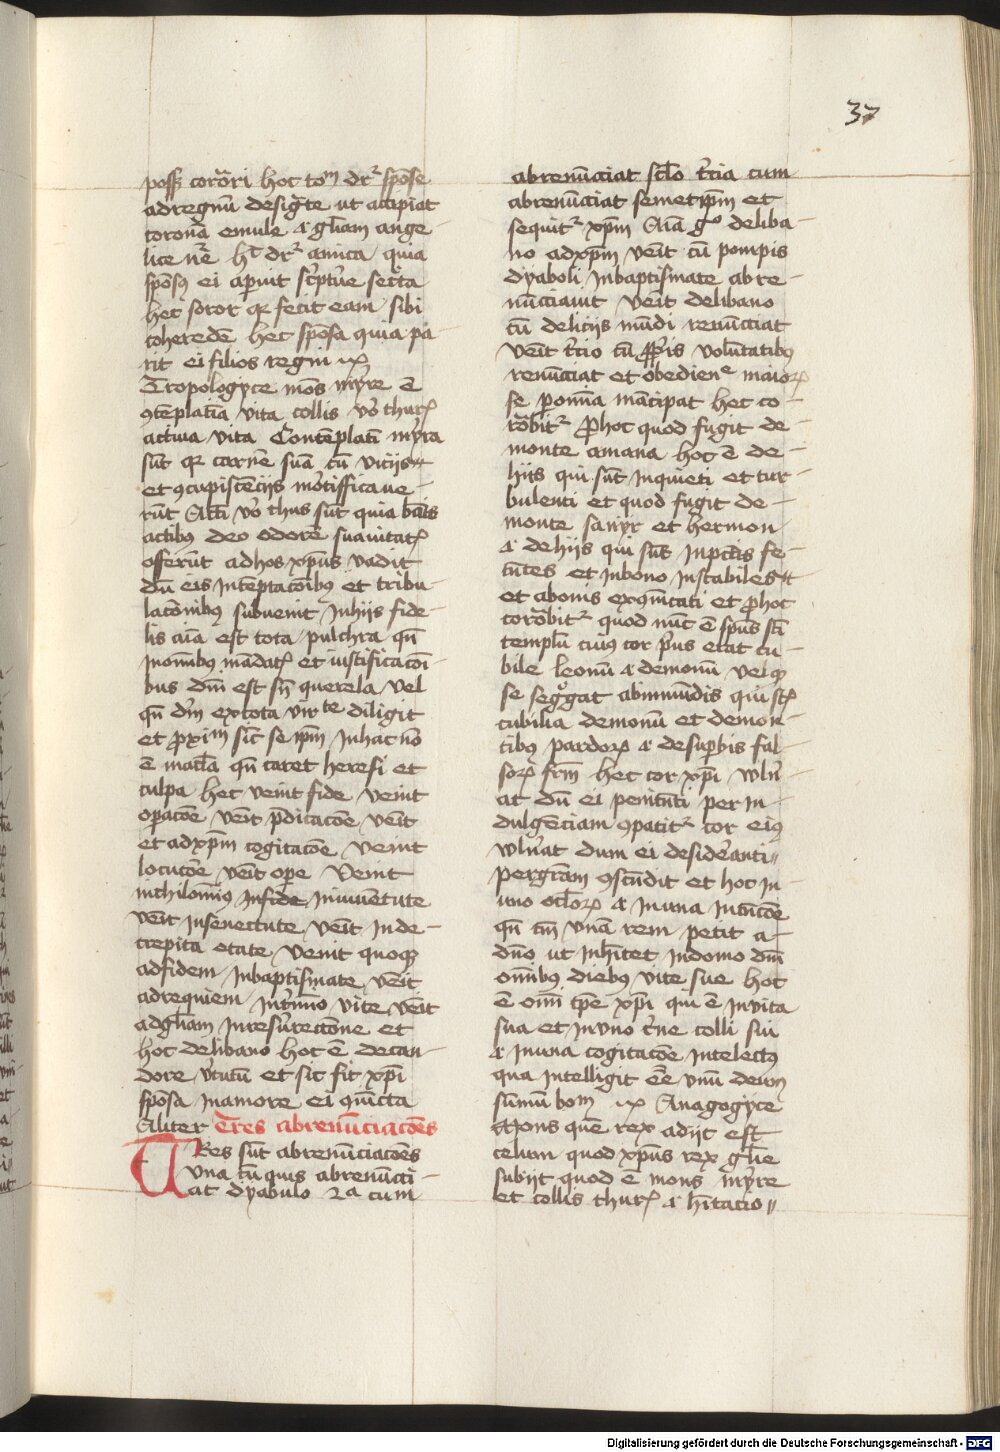 37
poss coro͂ri hoc to͂m dr̄ spo͂se
adregnū desig̃te ut accipiat
coronā emule ⁊ gl̄iam ange
lice nr̄e h̄ dr̄ amica quia
spo͂sꝰ ei apuit sc̃ptu͂e sec̃ta
hec soror qr fecit eam sibi
coheredē hec spo͂sa quia pa
rit ei filios regni
Tropologyce mōs myr̄e ē
ꝯteplatīa vita collis v̄o thur̄
actiua vita Contēplatī myrra
sūt qr carnē suā cū vicijs
et ꝯcupiscēcijs mo͂tifficaue
rūt Actī v̄o thus sūt quia bōis
actibꝰ deo odorē suauitat̄
offerūt adhos xp̄us vadit
dū eis intēptacōibꝰ et tribu
lacōnibꝰ subuenit Inhijs fide
lis aīa est tota pulchra qn̄
inom̄ibꝰ mādat̄ et iustificacōi
bus dm̄ est sn̄ querela vel
qn̄ dm̄ extota virte diligit
et ꝓxim sic̄ se ip̄m Inhac nō
ē macl̄a qn̄ caret heresi et
culpa hec venit fide venit
opacōe venit p̄dicacōe venīt
et adxp̄m cogitacōe venit
locucōe venīt ope Venit
nichilomīꝰ Infide Iniuuētute
venīt Insenectute venīt Inde
crepita etate venit quoqꝫ
adfidem Inbaptismate venīt
adrequiem Int̄mīo vite venīt
adgl̄iam Inresūrectione et
hoc delibano hoc ē decan
dore v̄tutū et sic fit xp̄i
spo͂sa Inamore ei qiūcta
Aliter Tres abrenūciacōes
TRes sūt abrenūciacōes
vna cū quis abrenūcti
at dyabulo 2a cum
abrenūciat sclo t̄cia cum
abrenūciat semetip̄m et
sequit̄ xp̄m Aīa gͦ deliba
no adxp̄m venīt cū pompis
dyaboli Inbaptismate abre
nūcciauit venīt delibano
cū delicijs mūdi renūcciat
venīt t̄cio cū ꝓpris volūtatibꝰ
renūciat et obedien̄ maioꝝ
se p om̄ia mācipat hec co
ro͂bit̄ ꝓhoc quod fugit de
monte amana hoc ē de
hijs qui sūt inquieti et tur
bulenti et quod fugit de
monte sanyr et hermon
⁊ dehijs qui sūt Inpc̄tis fe
tētes et Inbono Instabiles
et abonis et ꝓhoc
coro͂bit̄ quod nūc ē sp̄us sc̄i
templū cuiꝰ cor pꝰus erat cu
bile leonū ⁊ demonū velqꝫ
se segꝫgat abinmūdis qui st̄
cubilia demonū et demon
tibꝰ pardoꝝ ⁊ desup̄bis fal
soꝝ fr̄m hec cor xp̄i wln̄
at dū ei penitēti per in
dulgēciam ꝯpatit̄ cor eiꝰ
wln̄at dum ei desideranti
pergr̄am ꝯscūdit et hoc in
uno ocl̄oꝝ ⁊ Inuna Intēcōe
qn̄ tm̄ vnā rem petit a
dn̄o ut Inh̄itet Indomo dm̄
om̄ibꝰ diebꝰ vite sue hoc
ē om̄i tp̄e xp̄i qui ē Invita
sua et Inuno c̄ne colli sui
⁊ Inuna cogitacōe Intelectꝰ
qua intelligit eē vnū deum
sūmū bom Anagogyce
Mons quē rex adijt est
celum quod xp̄us rex gl̄ie
subijt quod ē mons myr̄e
et collis thur̄ ⁊ h̄itacio
Digitalisierung gefördert durch die Deutsche Forschungsgemeinschaft - DFG